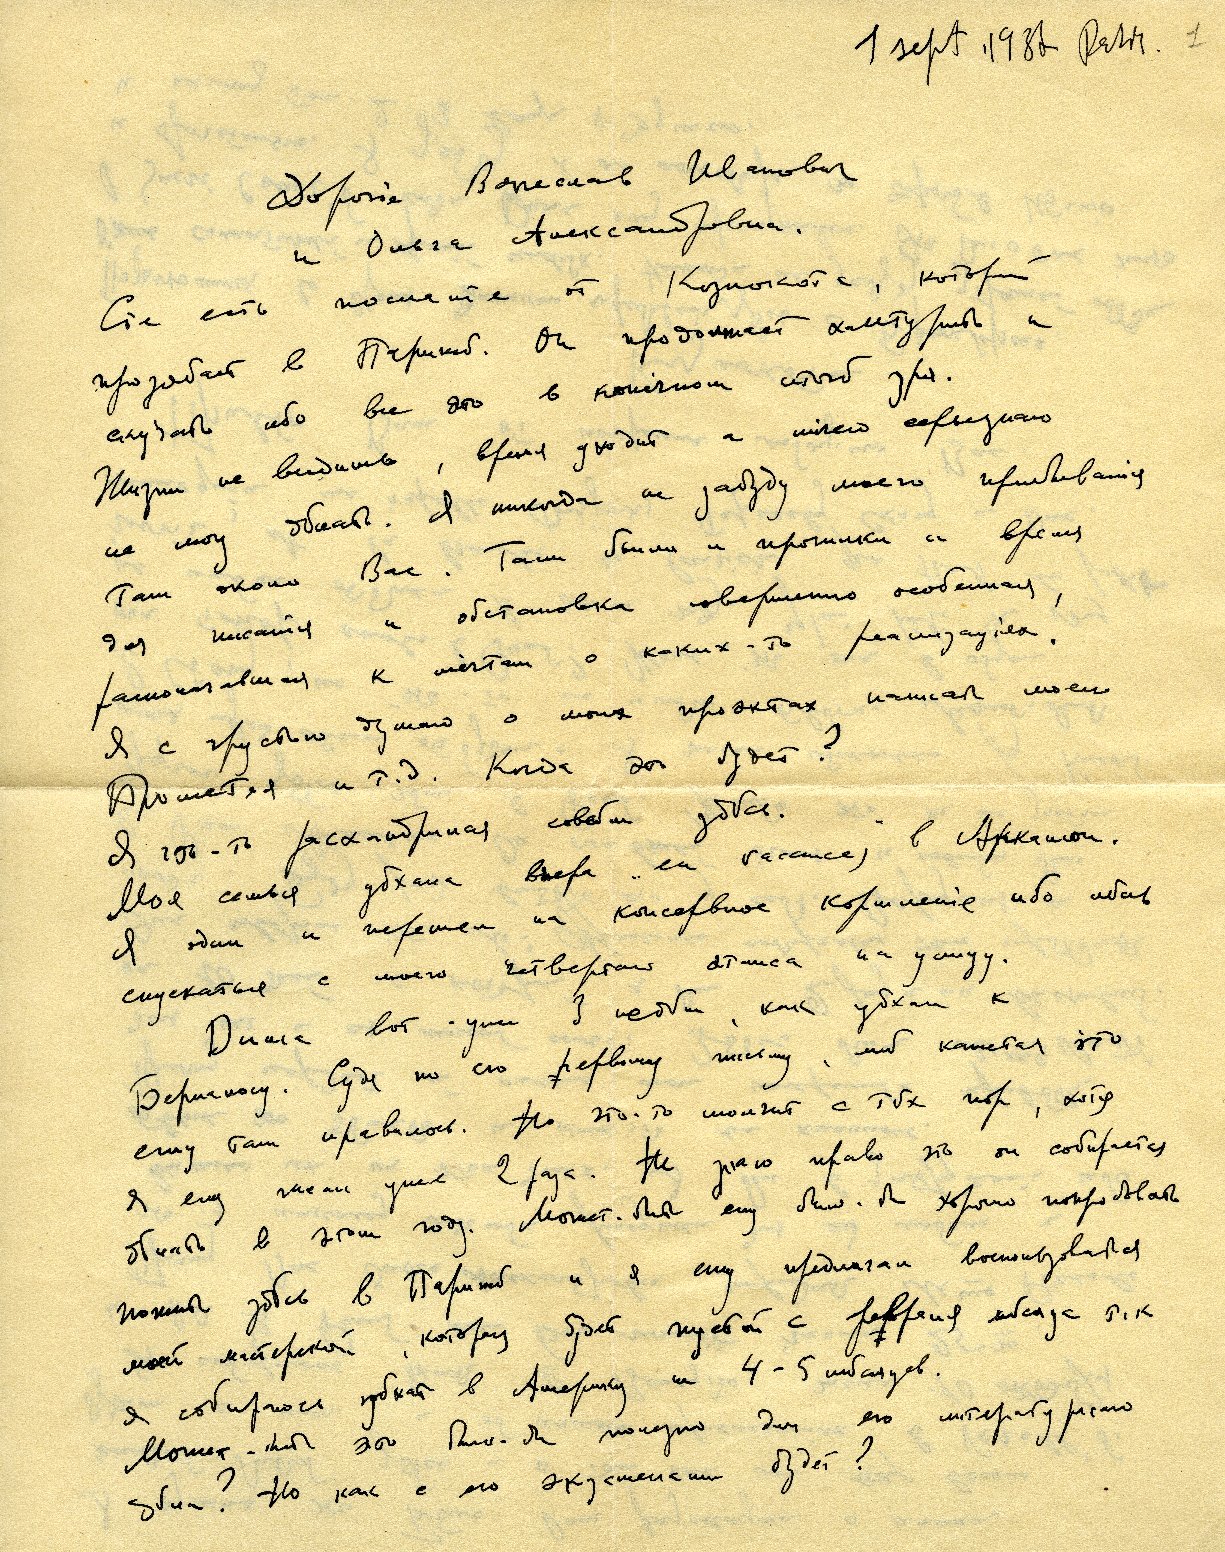 1 sept 1936 Paris. 1
Дорогiе Вячеслав Иванович
и Ольга Александровна.
Сiе есть посланiе от Козмокота, который
прозябает в Парижѣ. Он продолжает халтурить и
скучать ибо все это в конечном итогѣ зря.
Жизни не видишь, время уходит а ничего серьезнаго
не могу дѣлать. Я никогда не забуду моего пребыванiя
там около Вас. Там были и прогулки и время
для писанiя и обстановка совершенно особенная,
располагавшая к мечтам о каких-то реализацiях.
Я с грустью думаю о моих проэктах написать моего
Прометея и т.д. Когда это будет?
Я что-то расхандрился совсѣм здѣсь.
Моя семья уѣхала вчера "en vacances" в Аркашон.
Я один и перешел на консервное кормленiе ибо лѣнь
спускаться с моего четвертаго этажа на улицу.
Дима вот уже 3 недѣли, как уѣхал к
Бернаносу. Судя по его первому письму, мнѣ кажется что
ему там нравилось. Но что-то молчит с тѣх пор, хотя
я ему писал уже 2 раза. Не знаю право что он собирается
дѣлать в этом году. Может-быть ему было-бы хорошо попробовать
пожить здѣсь в Парижѣ и я ему предлагал воспользоваться
моей мастерской, которая будет пустой с февраля мѣсяца т.к
я собираюсь уѣхать в Америку на 4-5 мѣсяцев.
Может-быть это было-бы полезно для его литературнаго
дѣла? Но как с его экзаменами будет?